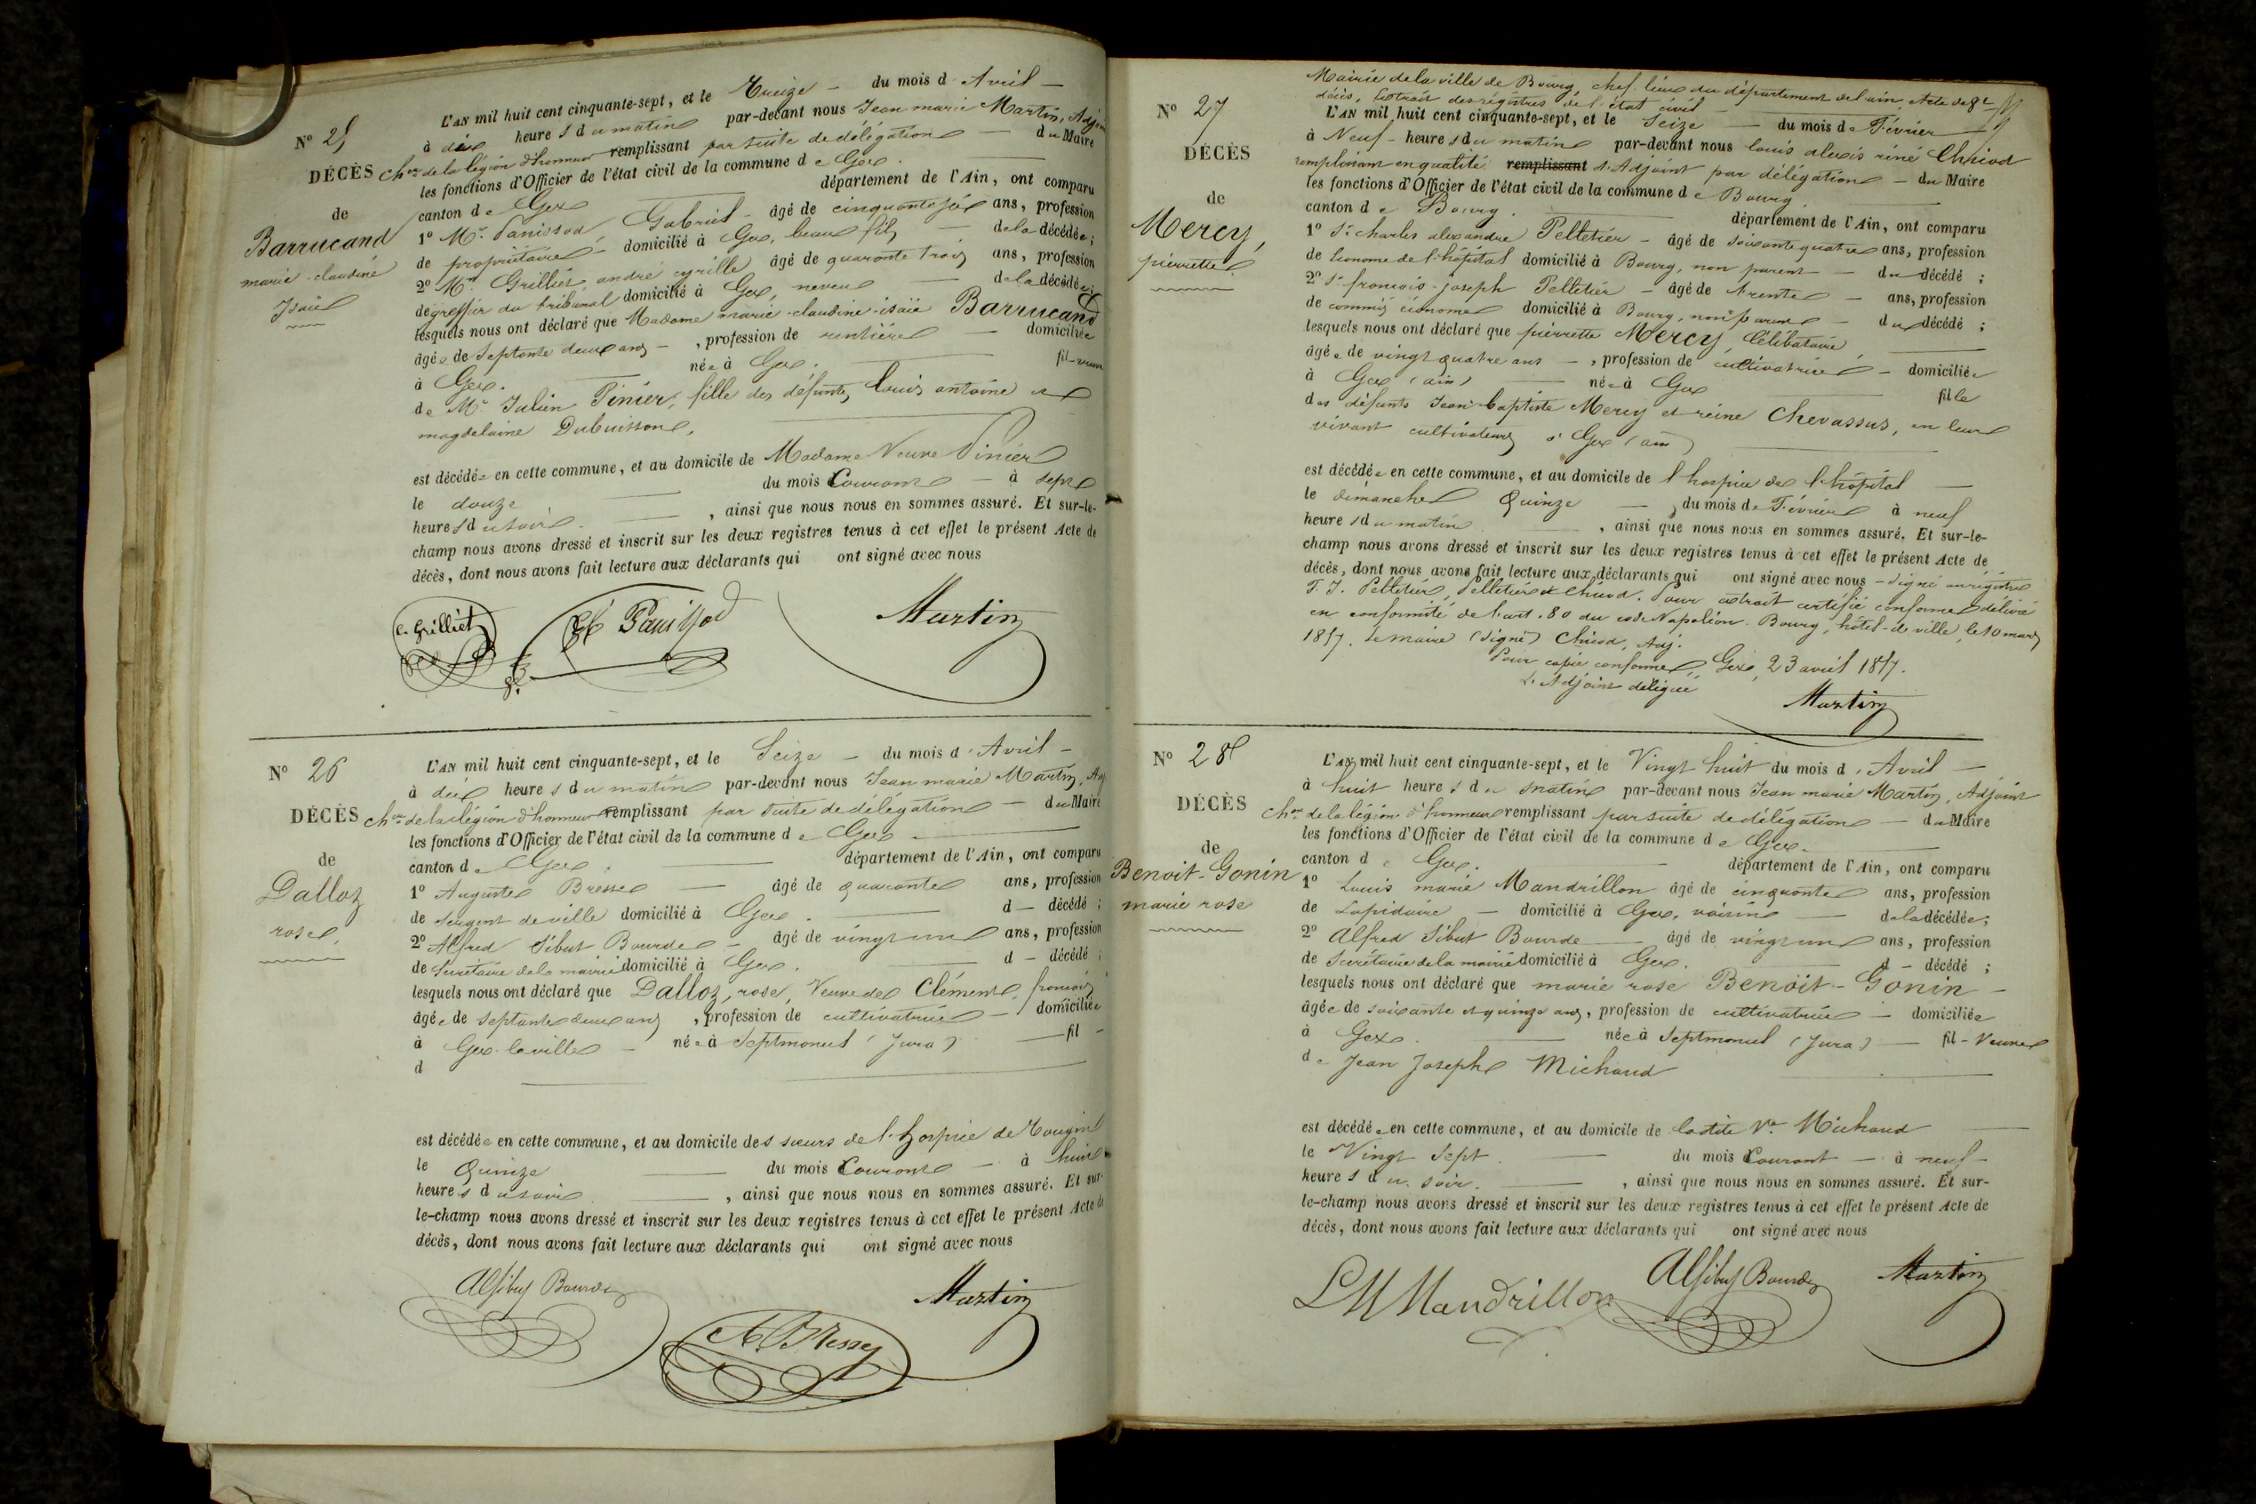 N° 25
DÉCÈS
de
Barrucand
marie-claudine
Isaïe
L'AN mil huit cent cinquante-sept, et le Treize — du mois d'Avril —
à dix heures du matin par-devant nous Jean marie Martin, Adjoint
chér de la légion d'honneur remplissant par suite de délégation — du Maire
les fonctions d'Officier de l'état civil de la commune de Gex.
canton de Gex département de l'Ain, ont comparu
1° Mr. Panissod, Gabriel — âgé de cinquante six ans, profession
de propriétaire — domicilié à Gex, beau fils — de la décédée;
2° Mr. Grilliet, andré cyrille âgé de quarante trois ans, profession
de greffier du tribunal domicilié à Gex, neveu — de la décédée;
lesquels nous ont déclaré que Madame marie-claudine-isaïe Barrucand
âgée de Septante deux ans —, profession de rentière — domiciliée
à Gex. — née à Gex. — fil-veuve
de Mr Julien Pinier, fille des défunts, Louis antoine et
magdelaine Dubuisson.
est décédée en cette commune, et au domicile de Madame Veuve Pinier
le douze — du mois Courant — à sept
heures du soir. —, ainsi que nous nous en sommes assuré. Et sur-le-
champ nous avons dressé et inscrit sur les deux registres tenus à cet effet le présent Acte de
décès, dont nous avons fait lecture aux déclarants qui ont signé avec nous
C. Grilliet Panissod Martin
N° 26
DÉCÈS
de
Dalloz
rose.
L'AN mil huit cent cinquante-sept, et le Seize — du mois d'Avril —
à dix heures du matin par-devant nous Jean marie Martin, Adj
chér de la légion d'honneur remplissant par suite de délégation — du Maire
les fonctions d'Officier de l'état civil de la commune de Gex
canton de Gex. département de l'Ain, ont comparu
1° Auguste Bressel — âgé de quarante ans, profession
de sergent de ville domicilié à Gex. — d — décédé;
2° Alfred Sibut Bourde — âgé de vingt un ans, profession
de Secrétaire de la mairie domicilié à Gex. — d — décédé;
lesquels nous ont déclaré que Dalloz, rose, Veuve de Clément, françois
âgée de septante deux ans, profession de cultivatrice — domiciliée
à Gex-la ville — née à Septmoncel (Jura) — fil —
d
est décédée en cette commune, et au domicile des sœurs de l'hospice de Tougin
le Quinze — du mois Courant — à huit
heures du soir. —, ainsi que nous nous en sommes assuré. Et sur-
le-champ nous avons dressé et inscrit sur les deux registres tenus à cet effet le présent Acte de
décès, dont nous avons fait lecture aux déclarants qui ont signé avec nous
Alf Sibut Bourde Martin
N° 27
DÉCÈS
de
Mercy,
pierrette
Mairie de la ville de Bourg, chef-lieu du département de l'ain, Acte de
décès, Extrait des régistres de l'état civil
L'AN mil huit cent cinquante-sept, et le Seize — du mois de Février
à Neuf — heures du matin par-devant nous louis alexis réné Chicod
remplissant en qualité remplissant d'Adjoint par délégation — du Maire
les fonctions d'Officier de l'état civil de la commune de Bourg
canton de Bourg. — département de l'Ain, ont comparu
1° Sr charles alexandre Pelletier — âgé de soixante quatre ans, profession
de économe de l'hôpital domicilié à Bourg, non parent — du décédé;
2° Sr françois-joseph Pelletier — âgé de trente — ans, profession
de commis économe domicilié à Bourg, non parent — du décédé;
lesquels nous ont déclaré que pierrette Mercy, Célibataire
âgée de vingt quatre ans —, profession de cultivatrice — domiciliée
à Gex (ain) — née à Gex — fille
des défunts Jean-baptiste Mercy et reine Chevassus, en leur
vivant cultivateurs à Gex (ain)
est décédée en cette commune, et au domicile de l'hospice de l'hôpital
le dimanche Quinze — du mois de Février à neuf
heures du matin —, ainsi que nous nous en sommes assuré. Et sur-le-
champ nous avons dressé et inscrit sur les deux registres tenus à cet effet le présent Acte de
décès, dont nous avons fait lecture aux déclarants qui ont signé avec nous — Signé au régistre
F. J. Pelletier, Pelletier et Chicod. Pour extrait certifié conforme délivré
en conformité de l'art. 80 du code Napoléon. Bourg, hôtel-de ville, le 10 mars
1857. Le maire (signé) Chicod, Adj.
Pour copie conforme, Gex, 23 avril 1857.
L'Adjoint délégué
Martin
N° 28
DÉCÈS
de
Benoit-Gonin
marie rose
L'AN mil huit cent cinquante-sept, et le Vingt huit du mois d'Avril —
à huit heures du matin par-devant nous Jean marie Martin, Adjoint
chér de la légion d'honneur remplissant par suite de délégation — du Maire
les fonctions d'Officier de l'état civil de la commune de Gex.
canton de Gex. — département de l'Ain, ont comparu
1° Louis marie Mandrillon âgé de cinquante ans, profession
de Lapidaire — domicilié à Gex, voisin — de la décédée;
2° Alfred Sibut Bourde — âgé de vingt un ans, profession
de Secrétaire de la mairie domicilié à Gex. — d — décédé;
lesquels nous ont déclaré que marie rose Benoit-Gonin —
âgée de soixante et quinze ans, profession de cultivatrice — domiciliée
à Gex. — née à Septmoncel (Jura) — fil — Veuve
de Jean Joseph Michaud
est décédée en cette commune, et au domicile de la dite Ve Michaud
le Vingt Sept. — du mois Courant — à neuf
heures du soir. —, ainsi que nous nous en sommes assuré. Et sur-
le-champ nous avons dressé et inscrit sur les deux registres tenus à cet effet le présent Acte de
décès, dont nous avons fait lecture aux déclarants qui ont signé avec nous
LM Mandrillon Alf Sibut Bourde Martin